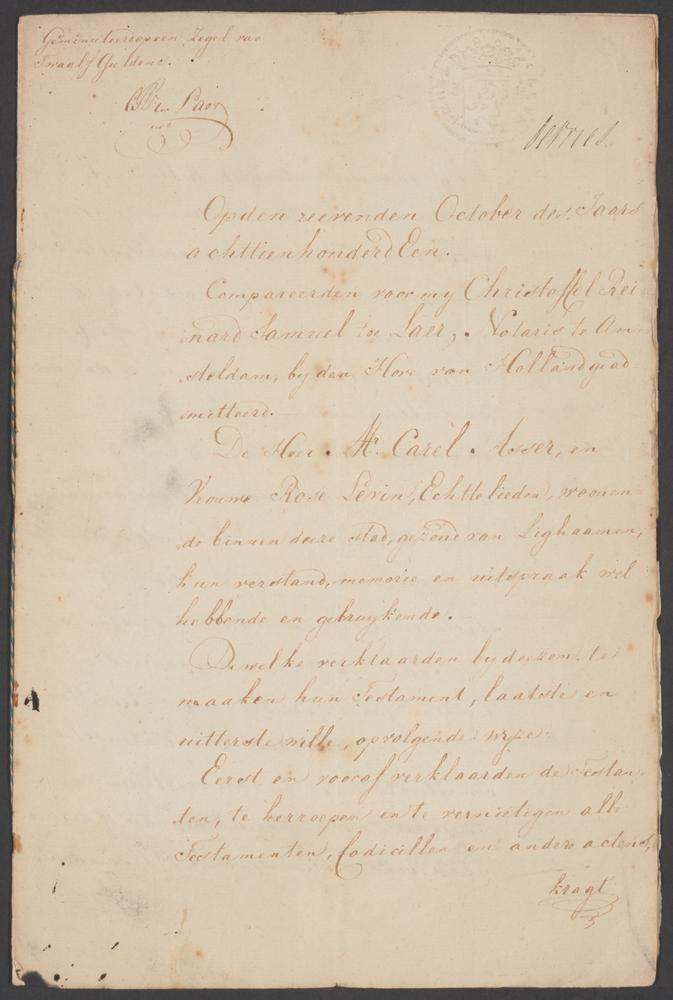 Geminuteerd op een Zegel van
Twaalf Guldens.
CRS te Laer
not.
de Vries
Op den zeevenden October des Jaars
achttienhonderd Een.
Compareerden voor my Christoffel Rei
nard Samuel te Laer, Notaris te Am
steldam, by den Hove van Holland gead
mitteerd.
De Heer Mr. Carel Asser, en
Vrouwe Rose Levin, Echtelieden, woonen
de binnen deeze stad, gezond van Lighaamen,
hun verstand, memorie en uitspraak wel
hebbende en gebruykende.
Dewelke verklaarden by deezen te
maaken hun Testament, laatste en
uitterste wille, op volgende wyze.
Eerst en vooraf verklaarden de Testan
ten, te herroepen en te vernietigen alle
Testamenten, Codicillen en andere actens,
kragt